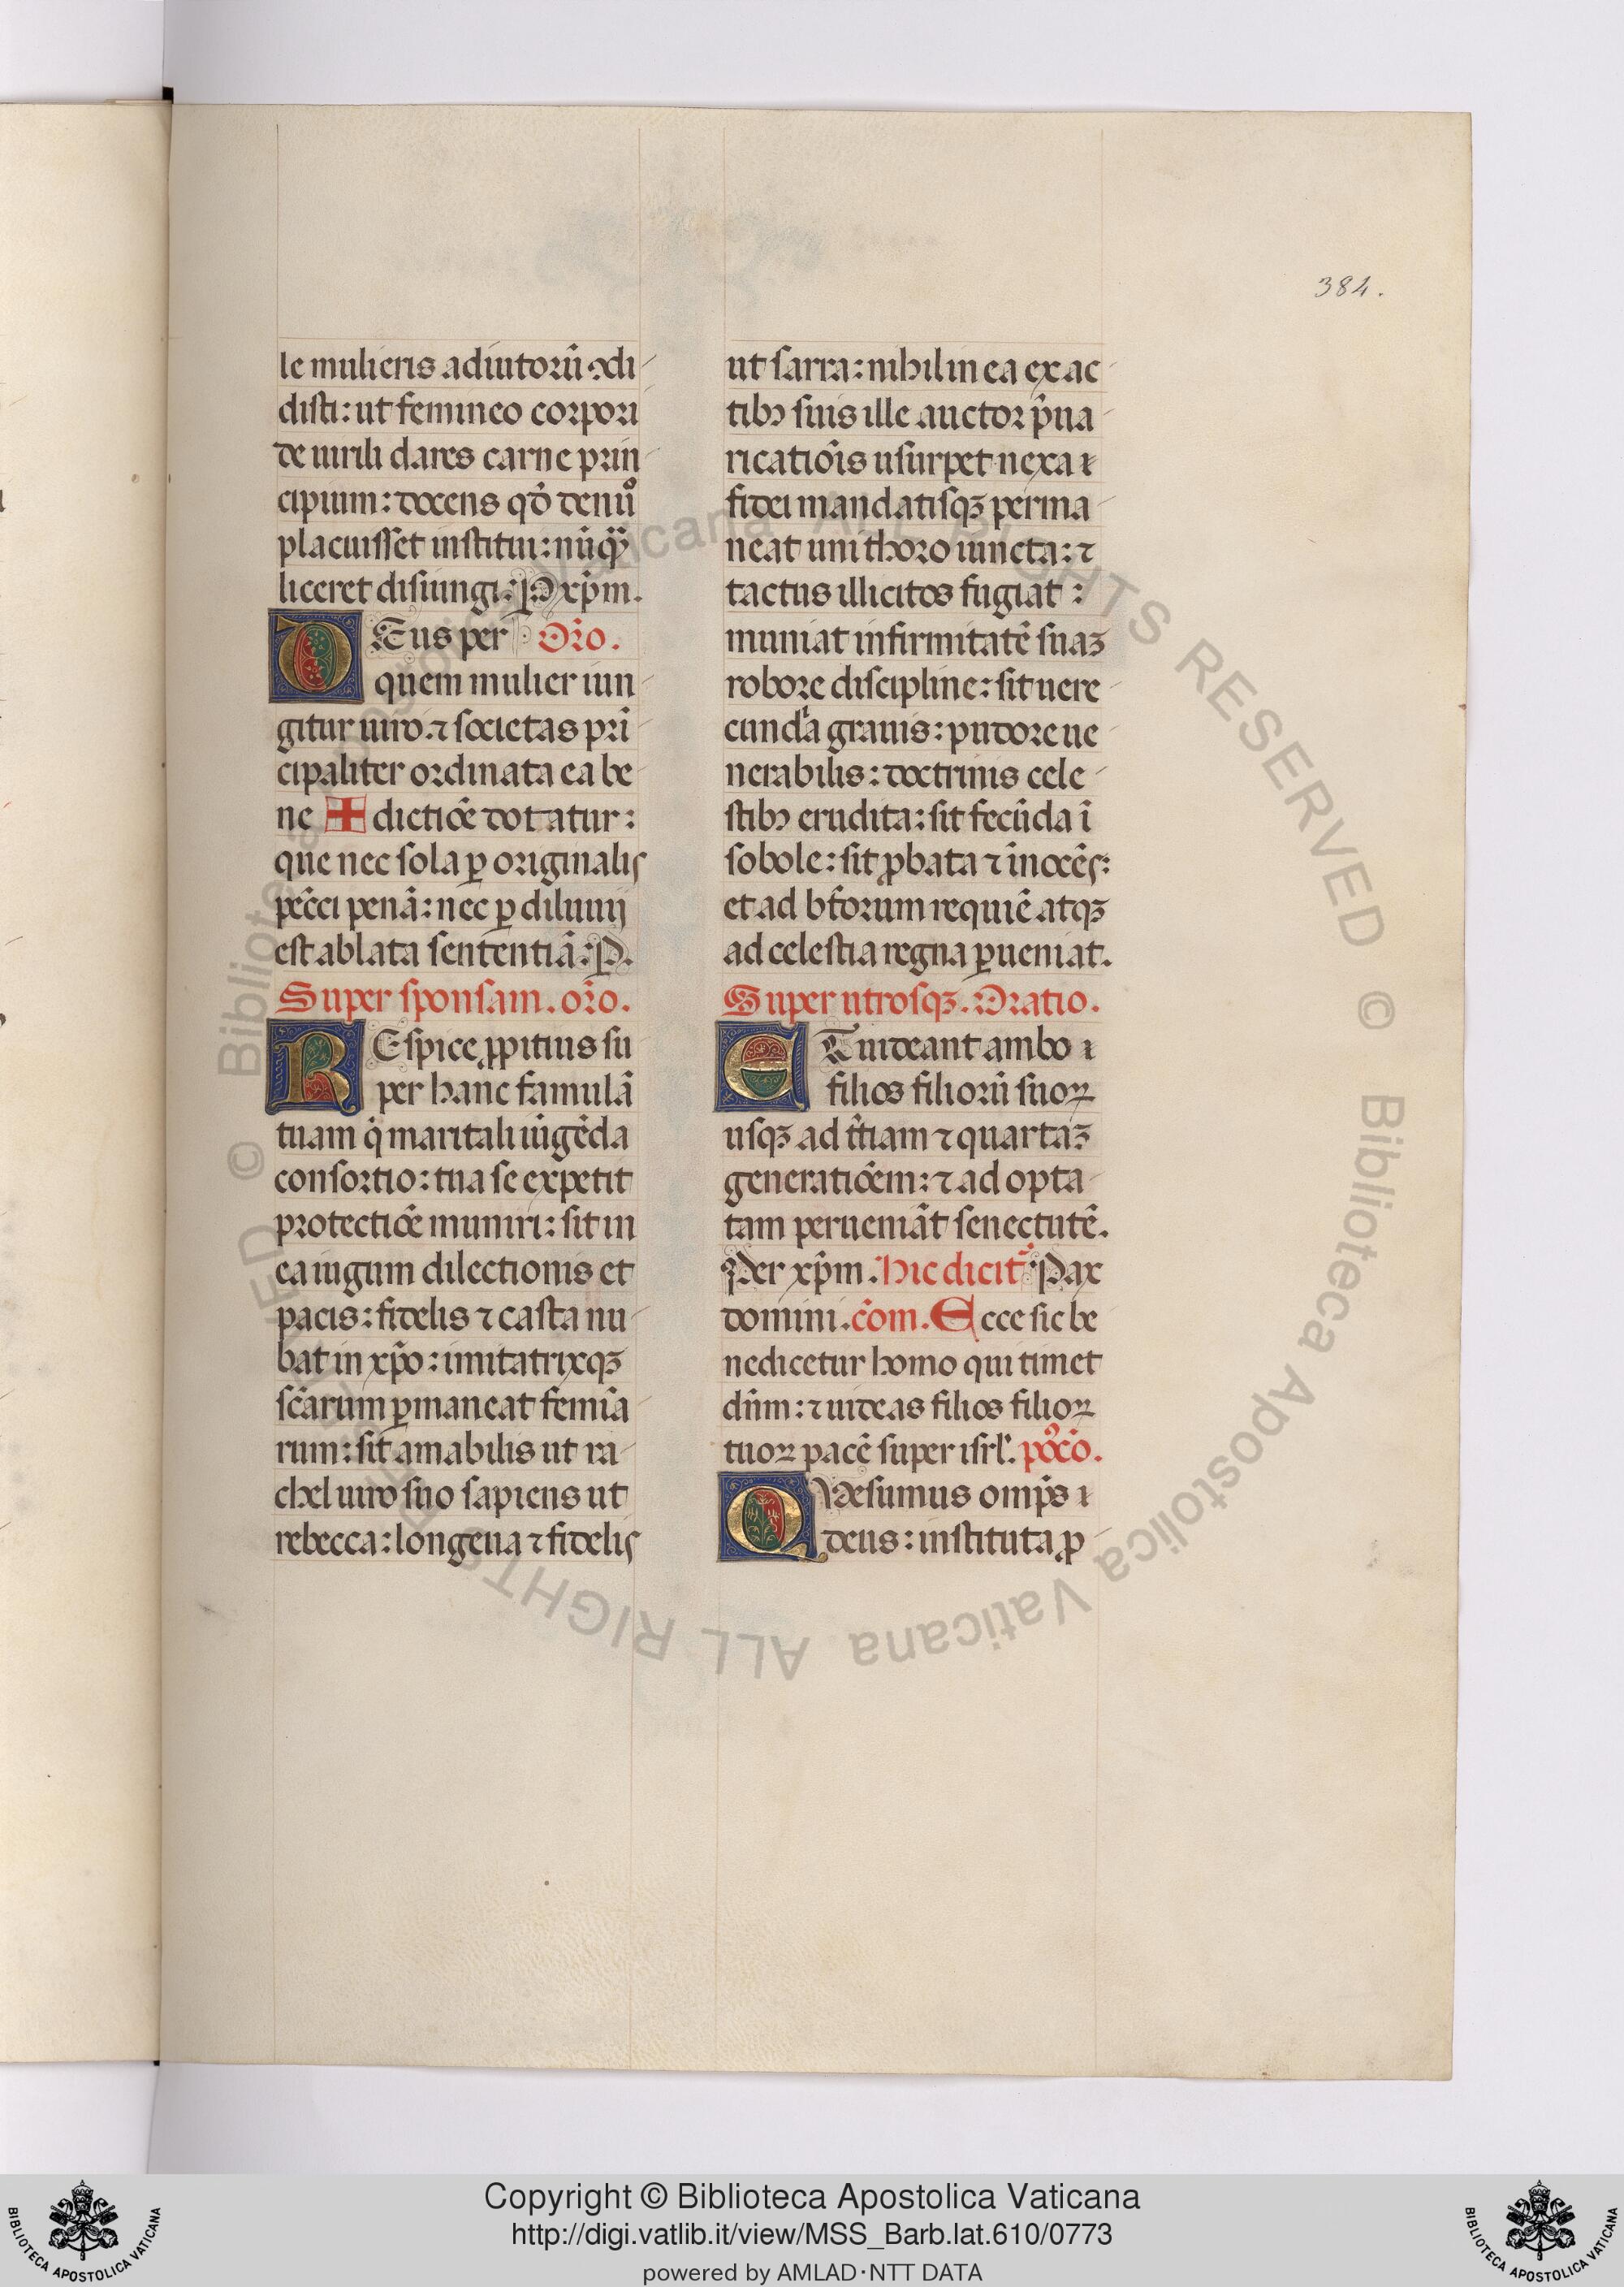 384.
le mulieris adiutoriū ↄdi
disti: ut femineo corpori
de uirili dares carne prin
cipium: docens qđ de nuͦ
placuisset institui: nūqꝫ
liceret disiungi: P xp̄m.
Deus per Or̄o.
quem mulier iun
gitur uiro. ⁊ societas pri̅
cipaliter ordinata ea be
ne ✚ dictiōe dotatur:
que nec sola ꝑ originalis
pēcci penā: nec ꝑ diluuij
est ablata sententiā: P.
Super sponsam. or̄o.
Respice ꝓpitius su
per hanc famulā
tuam q̄ maritali iūgēda
consortio: tua se expetit
protectiōe muniri: sit in
ea iugum dilectionis et
pacis: fidelis ⁊ casta nu
bat in xp̄o: imitatrixqꝫ
sc̄arum ꝑmaneat femīa
rum: sit amabilis ut ra
chel uiro suo sapiens ut
rebecca: longeua ⁊ fidelis
ut sarra: nihil in ea ex ac
tibꝰ suis ille auctor p̄ua
ricatiōis usurpet nexa
fidei mandatisqꝫ perma
neat uni thoro iuncta: ⁊
tactus illicitos fugiat:
muniat infirmitatē suaꝫ
robore discipline: sit uere
cundīa grauis: pudore ue
nerabilis: doctrinis cele
stibꝰ erudita: sit fecūda ī
sobole: sit ꝓbata ⁊ īnocēs:
et ad b̄torum requiē atqꝫ
ad celestia regna ꝑueniat.
Super utrosqꝫ. Oratio.
Et uideant ambo
filios filiorū suoꝝ
usqꝫ ad t̄tiam ⁊ quartaꝫ
generatiōem: ⁊ ad opta
tam perueniāt senectutē.
Per xp̄m. Hic dicit̄ Pax
domini. cōm. Ecce sic be
nedicetur homo qui timet
dn̄m: ⁊ uideas filios filioꝝ
tuoꝝ pacē super isrl̄. pꝰcō.
Quesumus omp̄s
deus: instituta ꝓ
Copyright © Biblioteca Apostolica Vaticana
http://digi.vatlib.it/view/MSS_Barb.lat.610/0773
powered by AMLAD·NTT DATA
BIBLIOTECA APOSTOLICA VATICANA
BIBLIOTECA APOSTOLICA VATICANA
© Biblioteca Apostolica Vaticana ALL RIGHTS RESERVED © Biblioteca Apostolica Vaticana ALL RIGHTS RESERVED